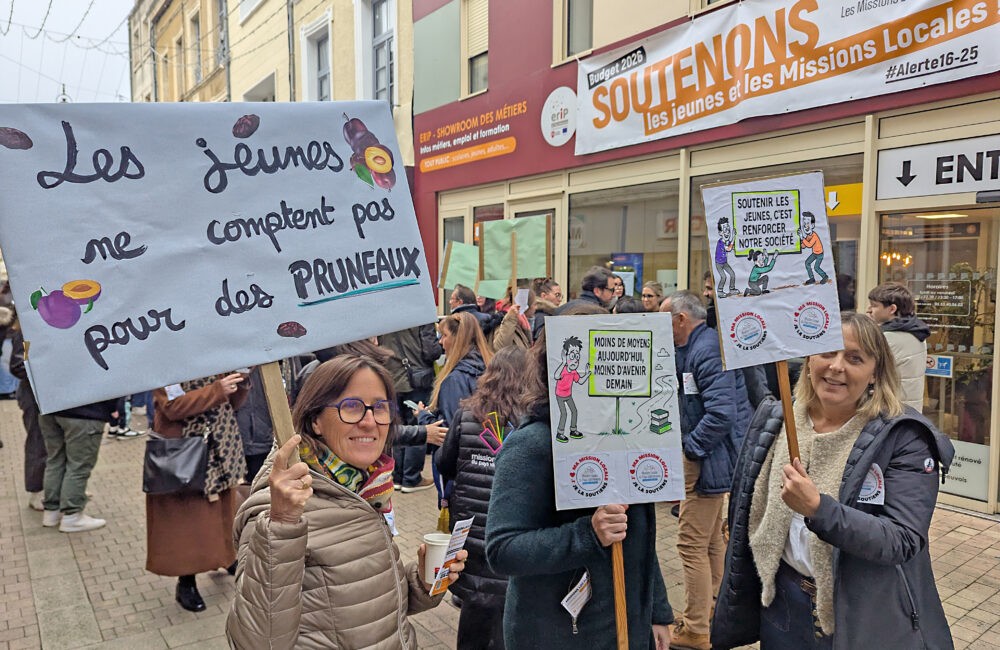 Les jeunes
ne comptent pas
pour des PRUNEAUX
ERIP - SHOWROOM DES MÉTIERS
Infos métiers, emploi et formation
TOUT PUBLIC : scolaires, jeunes, adultes...
eriP
Budget 2026
Les Missions
SOUTENONS
les jeunes et les Missions Locales
#Alerte16-25
ENT
SOUTENIR LES
JEUNES, C'EST
RENFORCER
NOTRE SOCIÉTÉ
MA MISSION LOCALE
JE LA SOUTIENS
MOINS DE MOYENS
AUJOURD'HUI,
MOINS D'AVENIR
DEMAIN
MA MISSION LOCALE
JE LA SOUTIENS
MA MISSION LOCALE
JE LA SOUTIENS
Horaires
mission